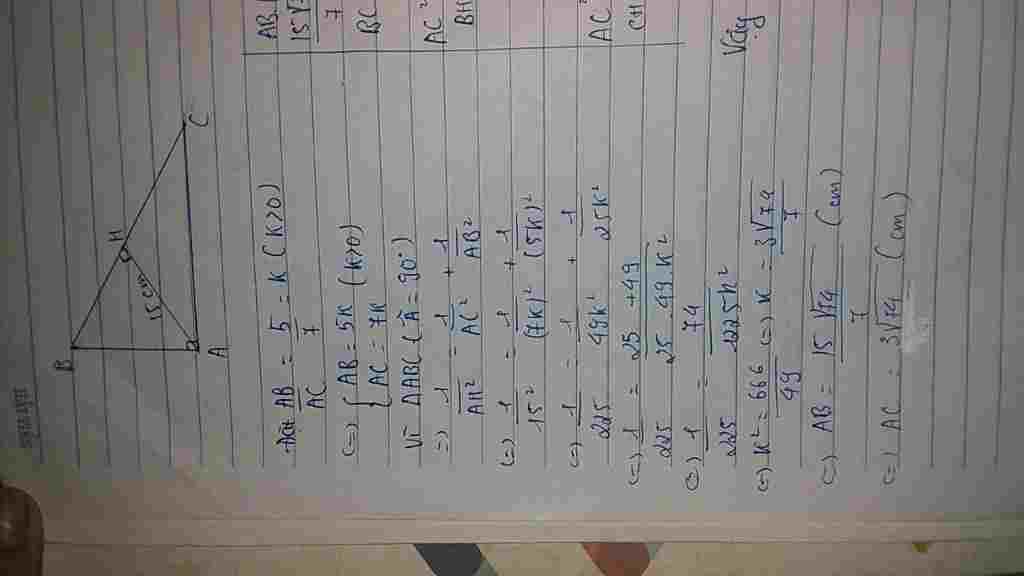 B
H
C
A
15cm
AB/AC = 5/7 = K (K>0)
(=) { AB = 5K (K>0)
{ AC = 7K
Vì ΔABC (Â = 90°)
=) 1/AH² = 1/AC² + 1/AB²
(=) 1/15² = 1/(7K)² + 1/(5K)²
(=) 1/225 = 1/49K² + 1/25K²
(=) 1/225 = 25 + 49/25 49 K²
(=) 1/225 = 74/1225K²
(=) K² = 666/49 (=) K = 3√74/7
(=) AB = 15√74/7 (cm)
(=) AC = 3√74 (cm)
AB
15√
7
BC
AC²
BH
AC²
CH
Vậy